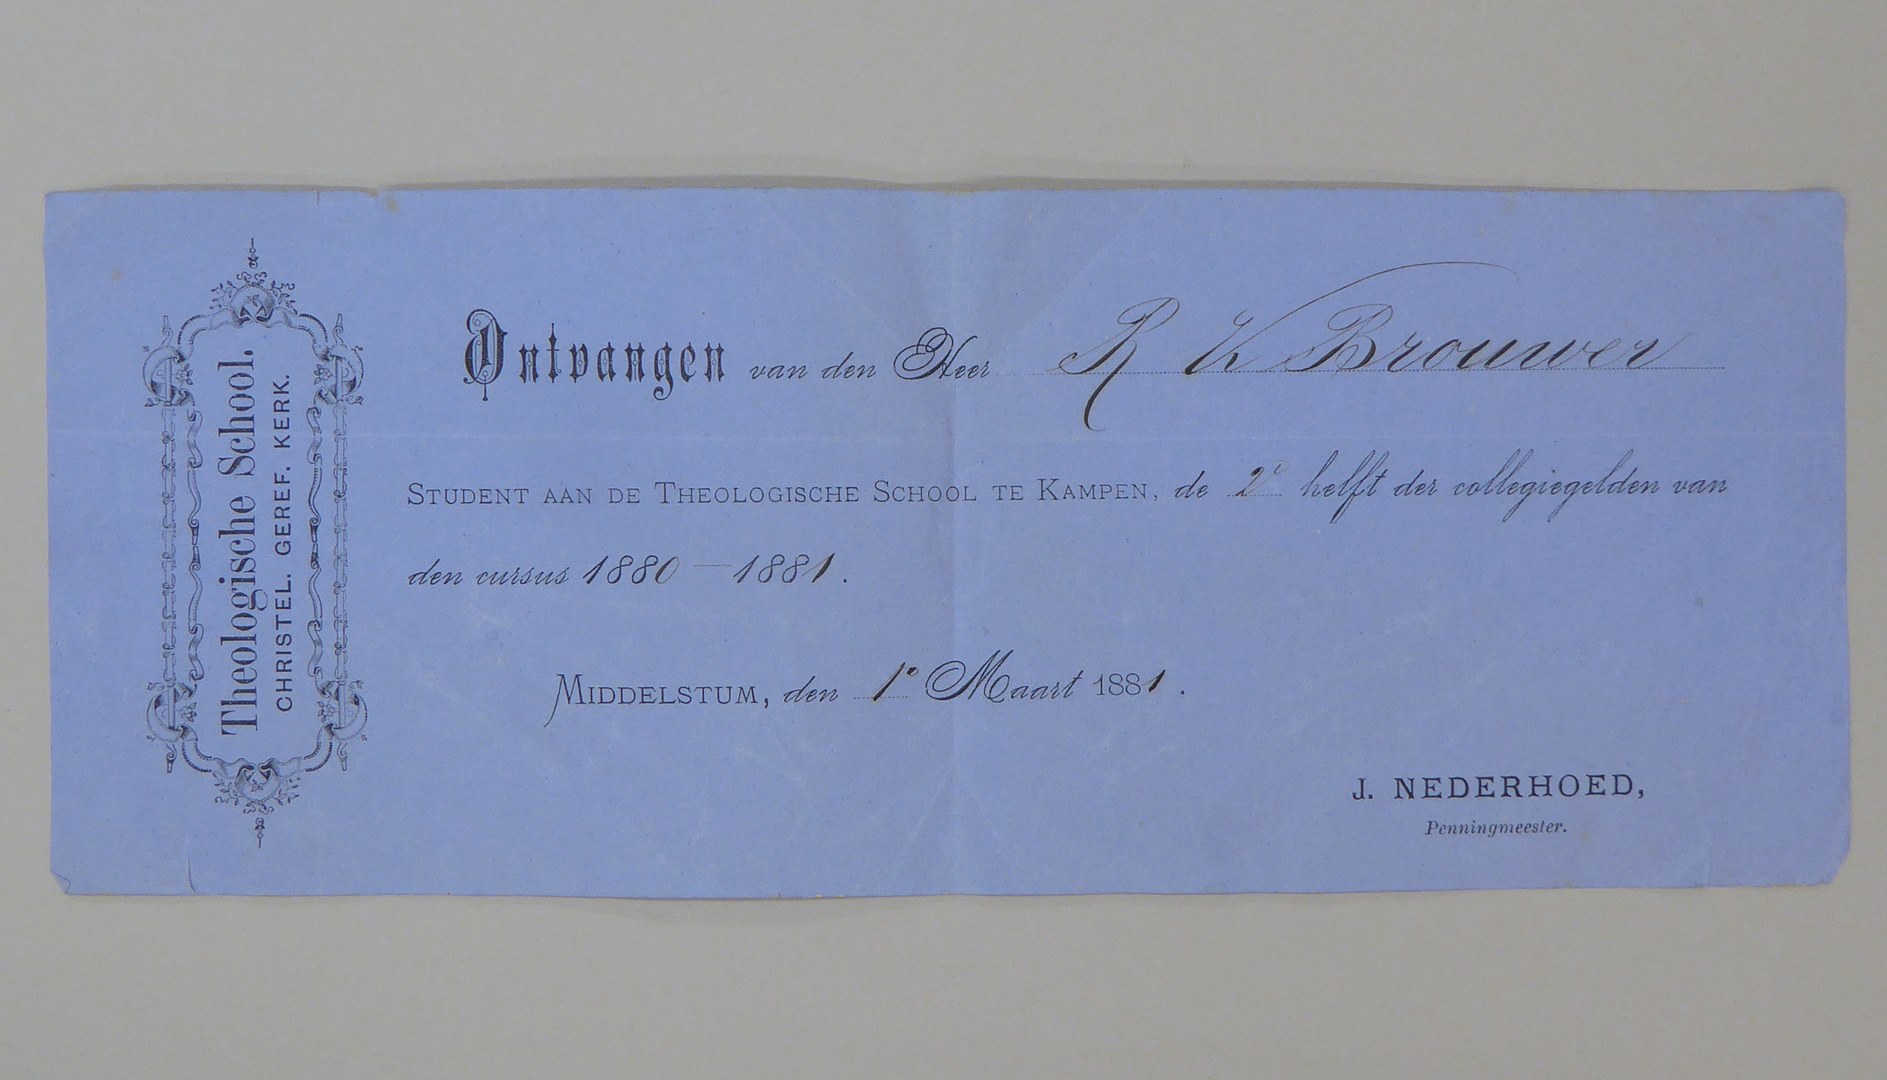 Theologische School.
CHRISTEL. GEREF. KERK.
Ontvangen van den Heer R K Brouwer
STUDENT AAN DE THEOLOGISCHE SCHOOL TE KAMPEN, de 2e helft der collegiegelden van
den cursus 1880 — 1881.
MIDDELSTUM, den 1e Maart 1881.
J. NEDERHOED,
Penningmeester.